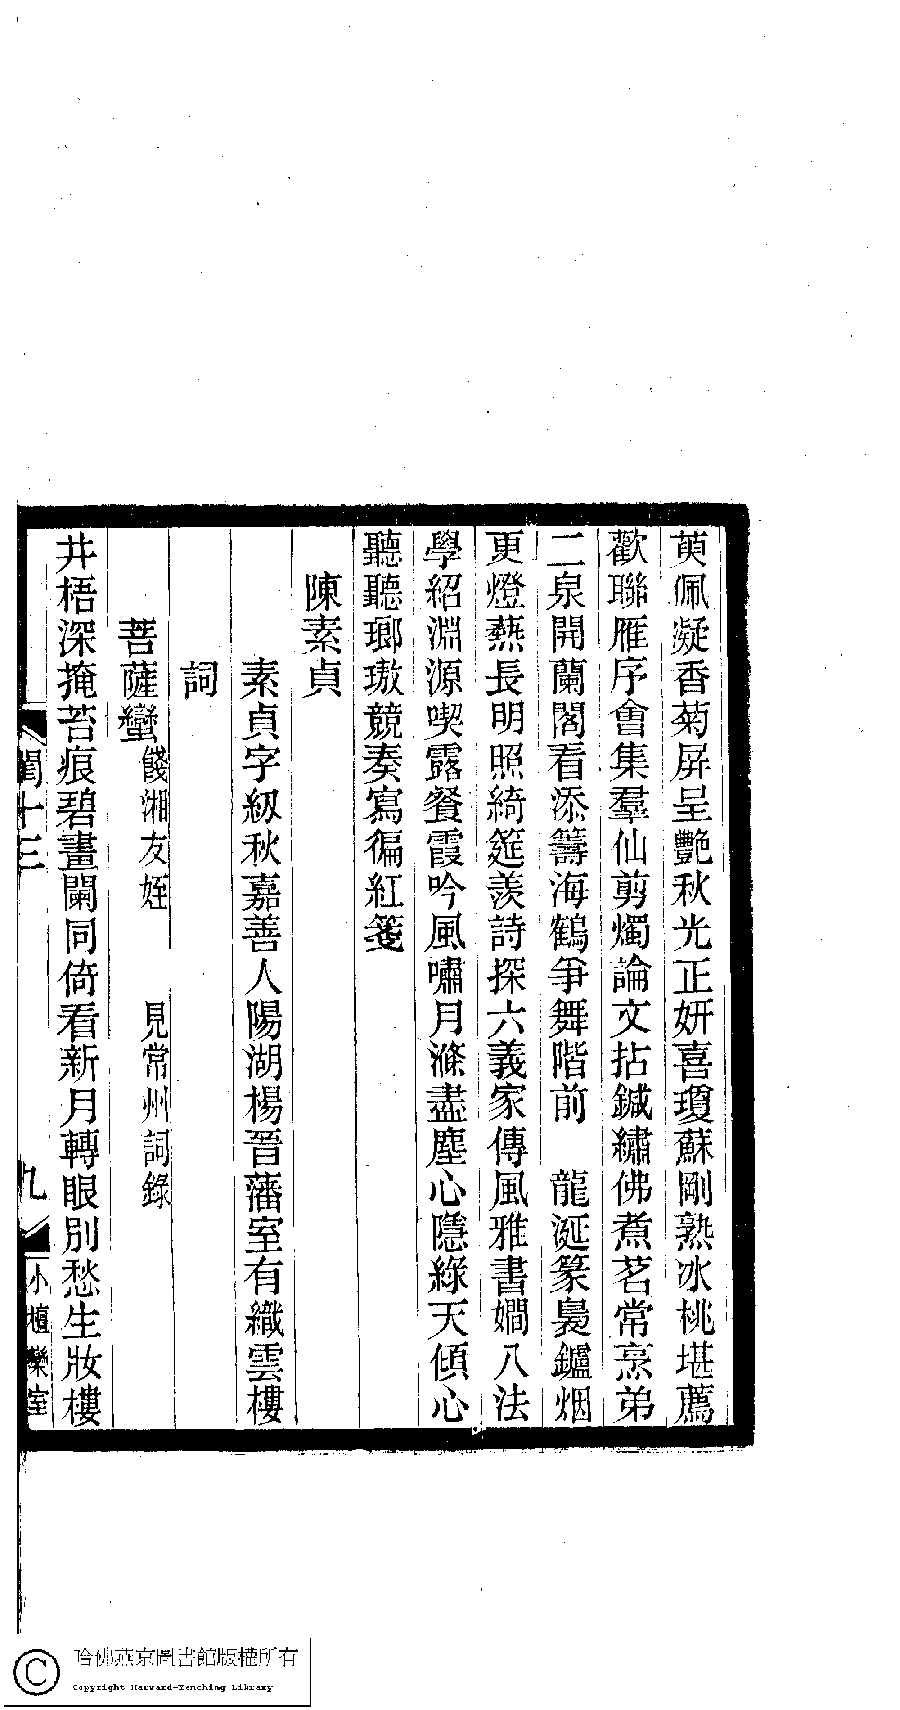 萸佩凝香菊屏呈艷秋光正妍喜瓊蘇剛熟冰桃堪薦
歡聯雁序會集羣仙剪燭論文拈鍼繡佛煮茗常烹弟
二泉開蘭閣看添籌海鶴爭舞階前　龍涎篆裊鑪烟
更燈爇長明照綺筵羨詩探六義家傳風雅書嫺八法
學紹淵源喫露餐霞吟風嘯月滌盡塵心隱綠天傾心
聽聽瑯璈競奏寫徧紅箋
陳素貞
素貞字紉秋嘉善人陽湖楊晉藩室有織雲樓
詞
菩薩蠻餞湘友姪　見常州詞錄
井梧深掩苔痕碧畫闌同倚看新月轉眼別愁生妝樓
閨十三
九
小檀欒室
哈佛燕京圖書館版權所有
Copyright Harvard-Yenching Library